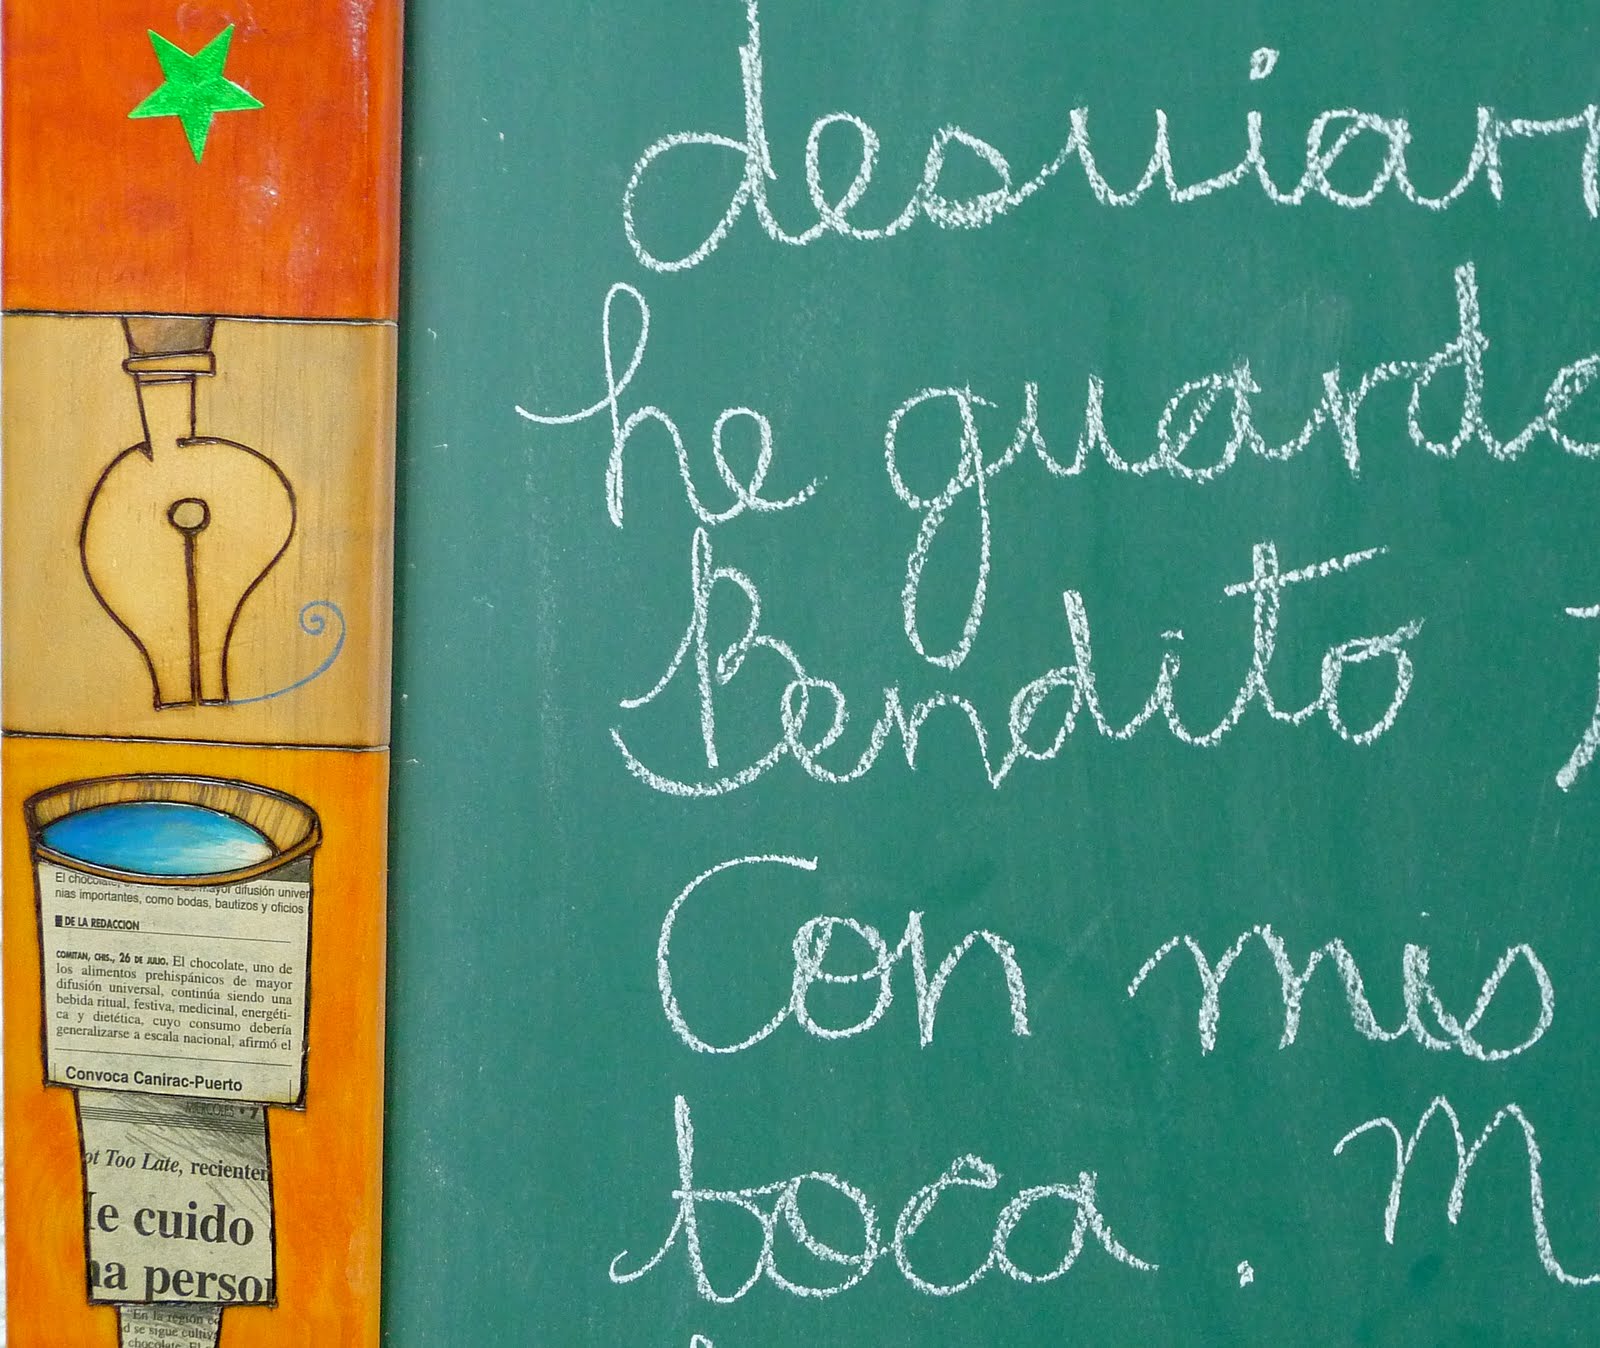 desviar
he guarde
Bendito
Con mis
toca. M
nias importantes, como bodas, bautizos y oficios
DE LA REDACCION
COMITAN, CHIS., 26 DE JULIO. El chocolate, uno de
los alimentos prehispánicos de mayor
difusión universal, continúa siendo una
bebida ritual, festiva, medicinal, energéti-
ca y dietética, cuyo consumo debería
generalizarse a escala nacional, afirmó el
Convoca Canirac-Puerto
MIERCOLES • 7
ot Too Late, recienten
le cuido
na person
En la región
d se sigue cultiv
chocolate. El